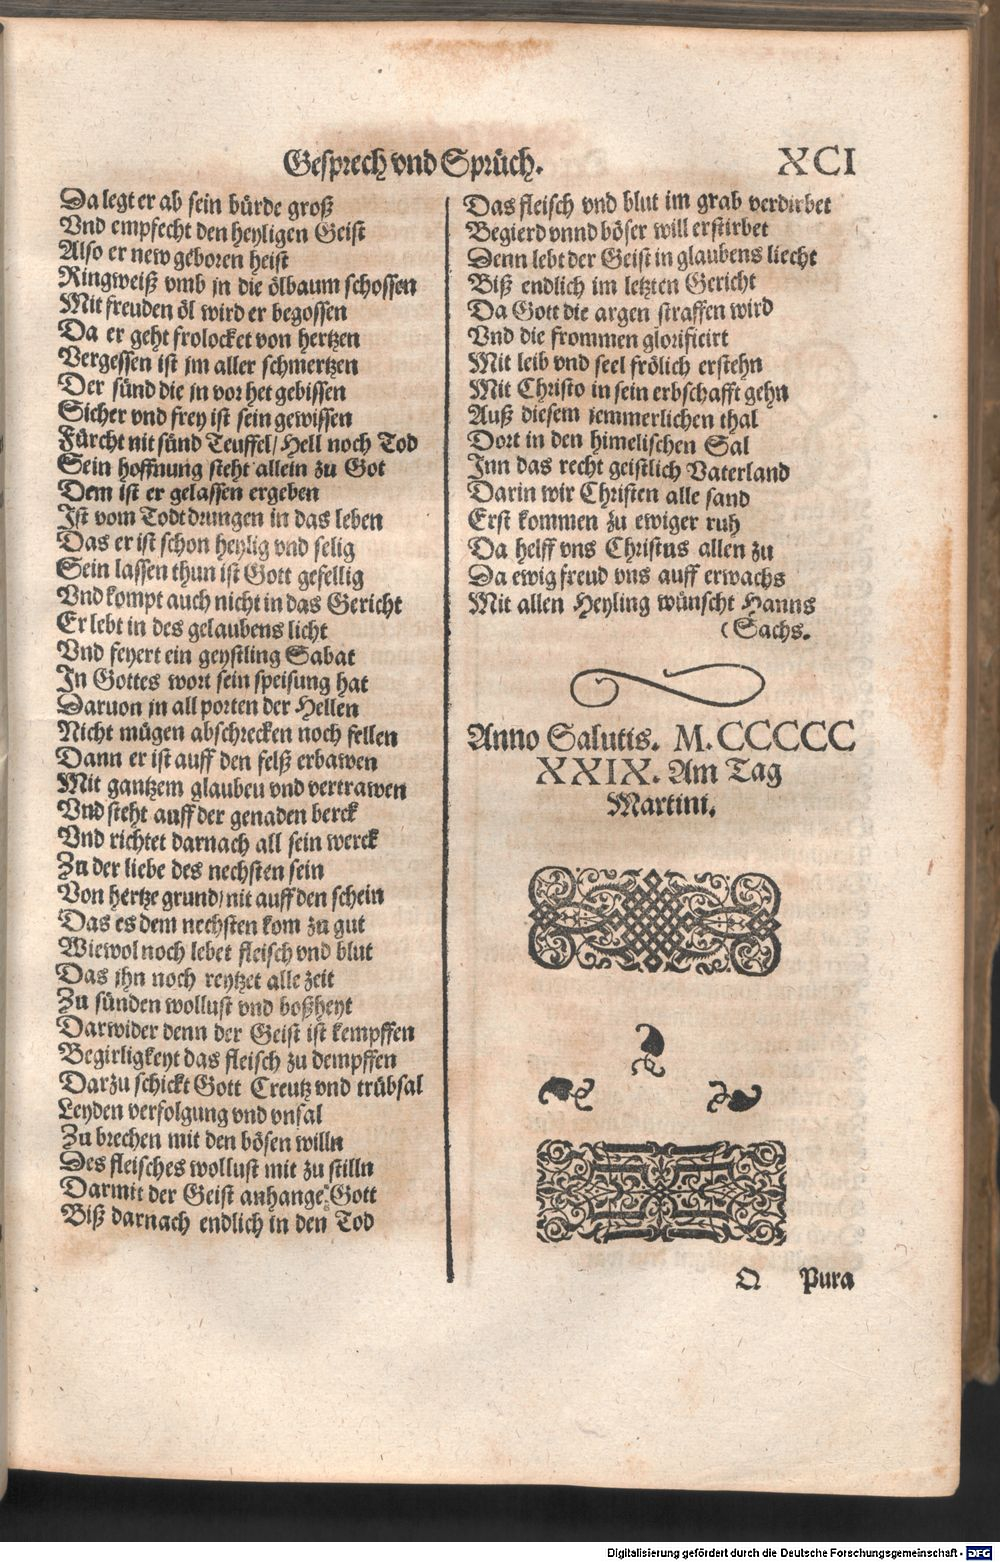 Gesprech vnd Sprüch. XCI
Da legt er ab sein bürde groß
Vnd empfecht den heyligen Geist
Also er new geboren heist
Ringweiß vmb jn die ölbaum schossen
Mit freuden öl wird er begossen
Da er geht frolocket von hertzen
Vergessen ist jm aller schmertzen
Der sünd die jn vor het gebissen
Sicher vnd frey ist sein gewissen
Fürcht nit sünd Teuffel/ Hell noch Tod
Sein hoffnung steht allein zu Got
Dem ist er gelassen ergeben
Ist vom Todt drungen in das leben
Das er ist schon heylig vnd selig
Sein lassen thun ist Gott gefellig
Vnd kompt auch nicht in das Gericht
Er lebt in des gelaubens licht
Vnd feyert ein geystling Sabat
In Gottes wort sein speisung hat
Daruon jn all porten der Hellen
Nicht mügen abschrecken noch fellen
Dann er ist auff den felß erbawen
Mit gantzem glaubeu vnd vertrawen
Vnd steht auff der genaden berck
Vnd richtet darnach all sein werck
Zu der liebe des nechsten sein
Von hertze grund/ nit auff den schein
Das es dem nechsten kom zu gut
Wiewol noch lebet fleisch vnd blut
Das jhn noch reytzet alle zeit
Zu sünden wollust vnd boßheyt
Darwider denn der Geist ist kempffen
Begirligkeyt das fleisch zu dempffen
Darzu schickt Gott Creutz vnd trübsal
Leyden verfolgung vnd vnfal
Zu brechen mit den bösen willn
Des fleisches wollust mit zu stilln
Darmit der Geist anhange Gott
Biß darnach endlich in den Tod
Das fleisch vnd blut im grab verdirbet
Begierd vnnd böser will erstirbet
Denn lebt der Geist in glaubens liecht
Biß endlich im letzten Gericht
Da Gott die argen straffen wird
Vnd die frommen glorificirt
Mit leib vnd seel frölich erstehn
Mit Christo in sein erbschafft gehn
Auß diesem jemmerlichen thal
Dort in den himelischen Sal
Inn das recht geistlich Vaterland
Darin wir Christen alle sand
Erst kommen zu ewiger ruh
Da helff vns Christus allen zu
Da ewig freud vns auff erwachs
Mit allen Heyling wünscht Hanns
(Sachs.
Anno Salutis. M. CCCCC
XXIX. Am Tag
Martini.
Q Pura
Digitalisierung gefördert durch die Deutsche Forschungsgemeinschaft - DFG